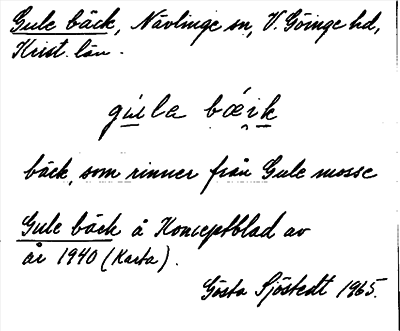 Gule bäck, Nävlinge sn, V. Göinge hd,
Krist. län.
gu̲la bǽi̯k̲
bäck, som rinner från Gule mosse
Gule bäck å Konceptblad av
år 1940 (Karta).
Gösta Sjöstedt 1965.